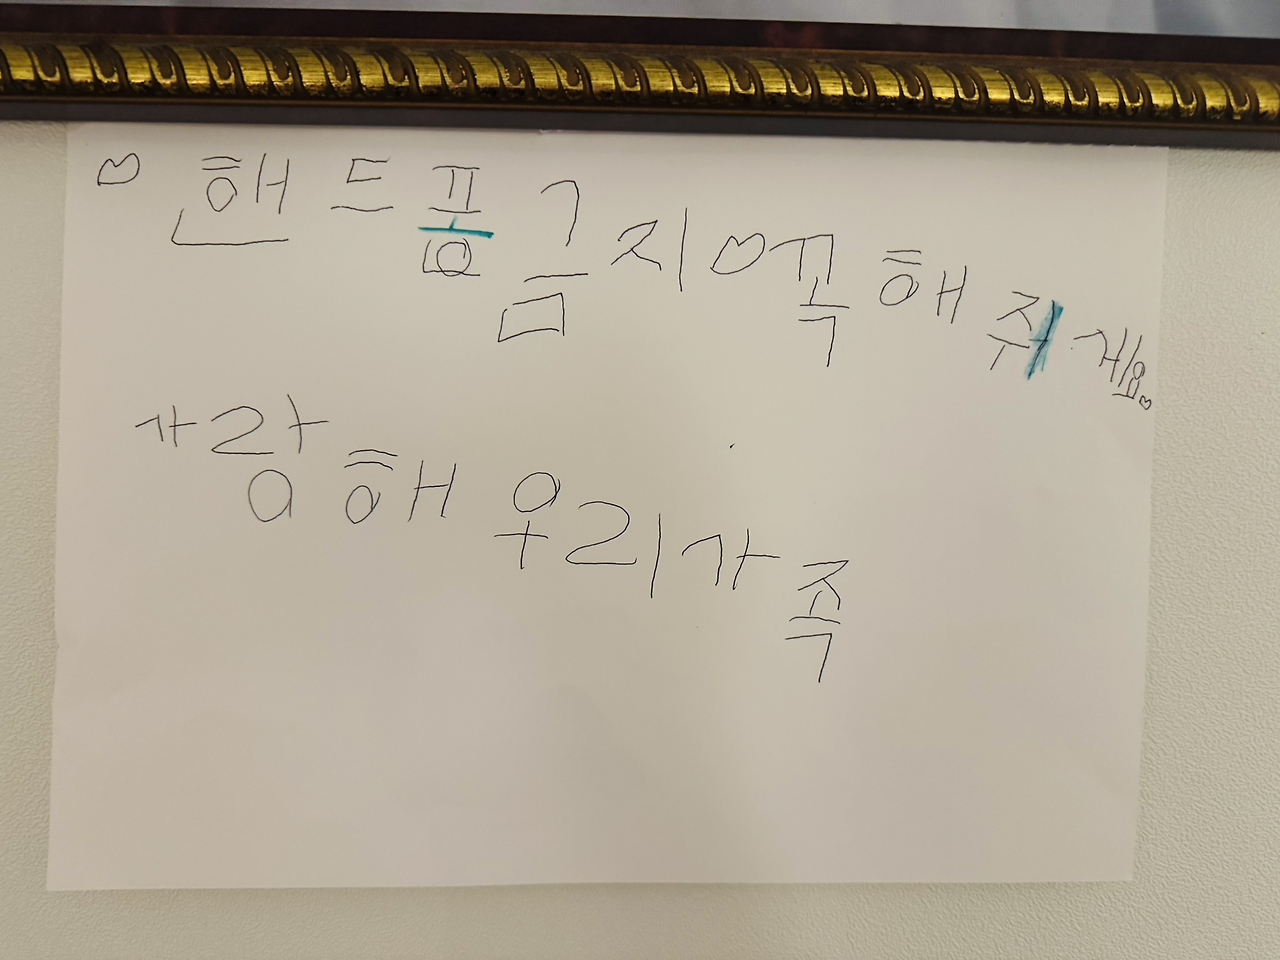 ♡ 핸드폼 금지♡꼭 해주게요♡
가랑해 우리가족